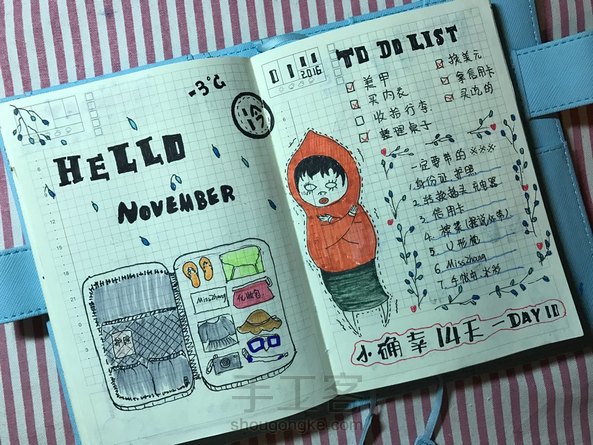 -3°C
冷
HELLO
NOVEMBER
MissZhang
化妆包
护照
01 11
2016
TO DO LIST
美甲
买内衣
收拾行李
整理桌子
换美元
拿信用卡
买吃的
一定要带的 ※※※
1. 身份证 护照
2. 转换插头 充电器
3. 信用卡
4.
5. U形枕
6. MissZhang
7. 手帐本 水彩
小确幸14天—DAY 10
手工客
shougongke.com